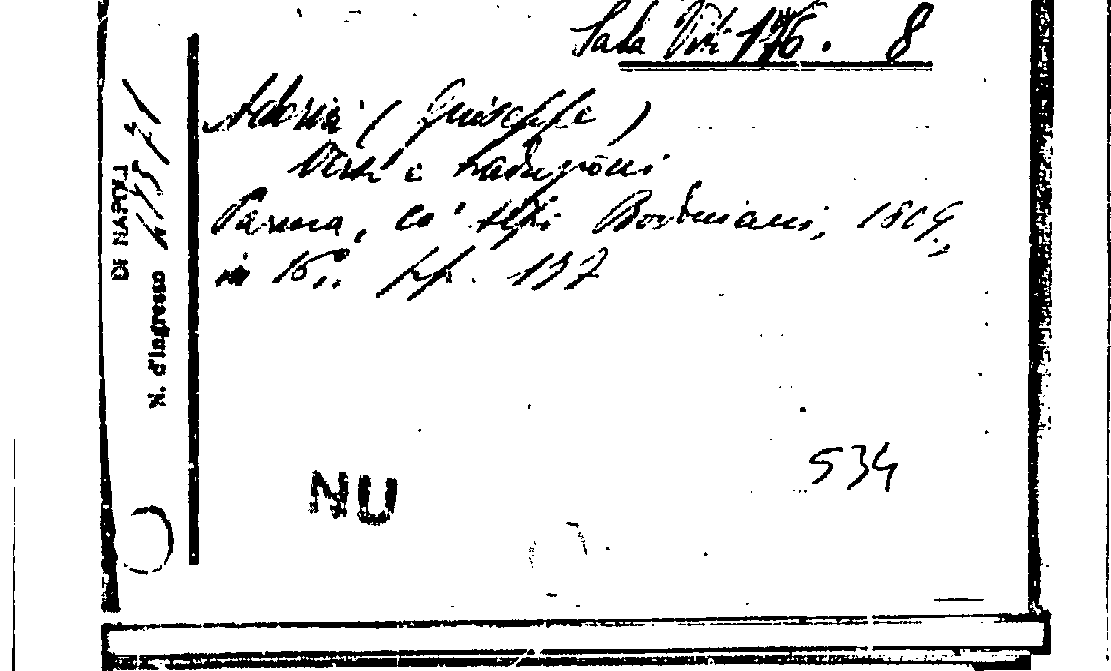 Sala Vit. 176. 8
Adorni (Giuseppe)
Versi e traduzioni
Parma, co' tipi Bodoniani, 1809,
in 16.º pp. 137
534
NU
DI NAPOLI
N. d'ingresso